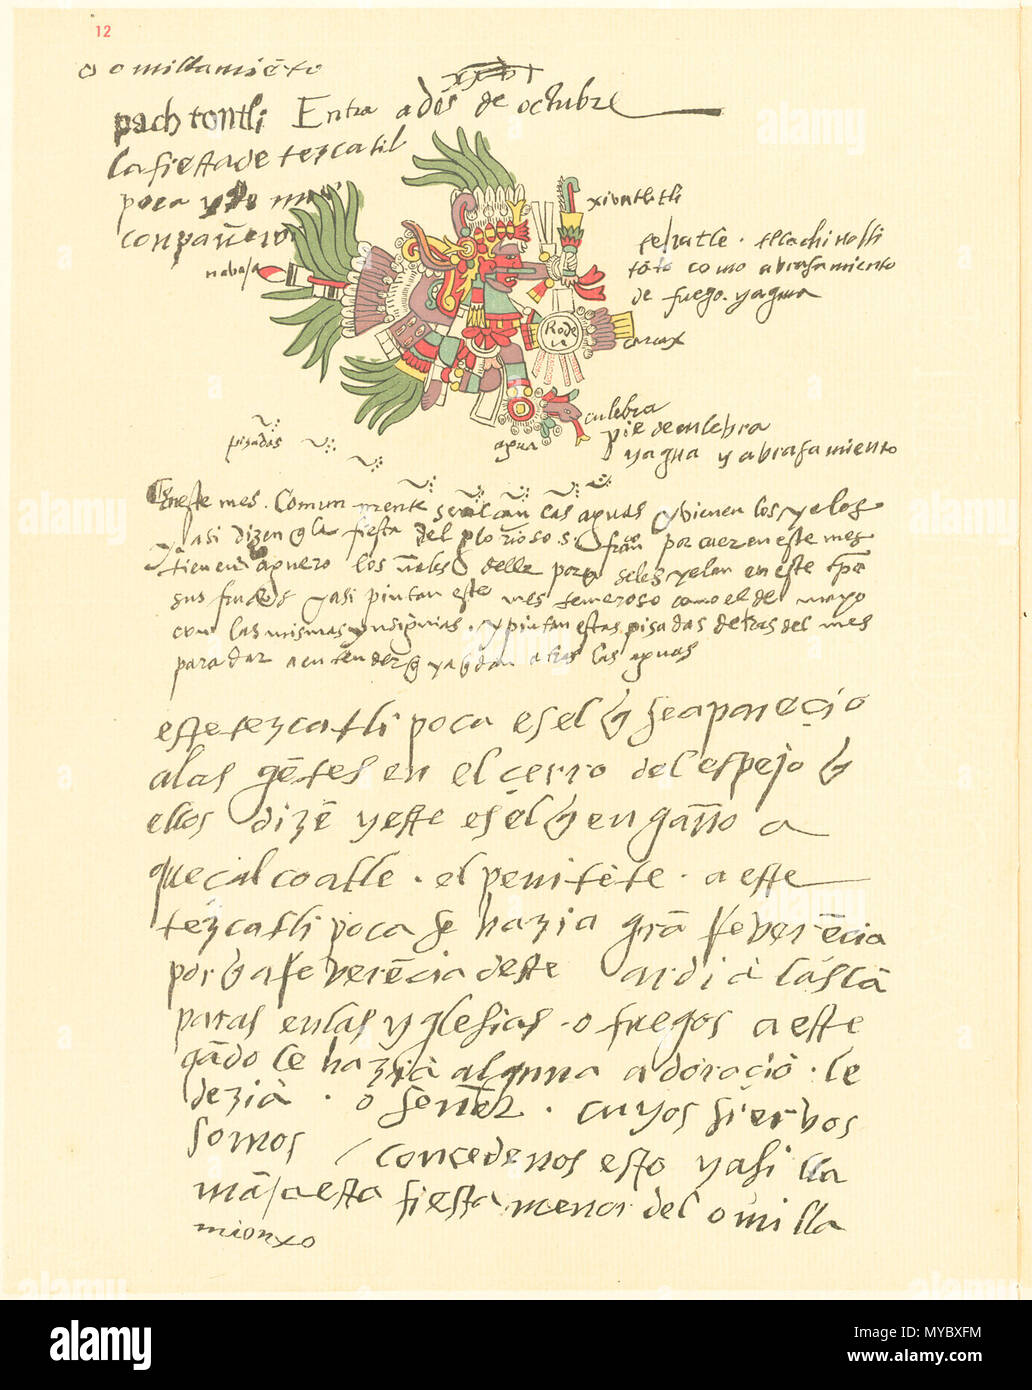 12
o omillamiēto
pachtontli Entra a dos de octubre
la fiesta de tezcatli
poca y
conpañero
nabaja
xiuatlatli
teuatle . tlachinolli
como abrasamiento
de fuego . y agua
Rode
la
carcax
culebra
pie de culebra
y agua y abrasamiento
agua
pisadas
En este mes . Comun mente se alcan las aguas y vienen los yelos
y asi dizen q la fiesta del glorioso s. frāco por caer en este mes
tienen aguero los delle porq se les yelan en este tpo
sus frutos y asi pintan este mes temeroso como el de mayo
con las mismas ynsignias . y pintan estas pisadas detras del mes
para dar a entender q ya q dan atras las aguas
este tezcatli poca es el q se apareçio
a las gētes en el çerro del espejo q
ellos dizē y este es el q engaño a
queçalcoatle . el penitēte . a este
tezcatli poca se hazia grā reverēcia
por q a reverēcia deste ardiā
paras en las yglesias . o fuegos a este
qādo le haziā alguna adoraçiō . le
deziā . o señor . cuyos siervos
somos / concedenos esto y asi lla
mā a esta fiesta menor del omilla
miento
alamy
MYBXFM
www.alamy.com